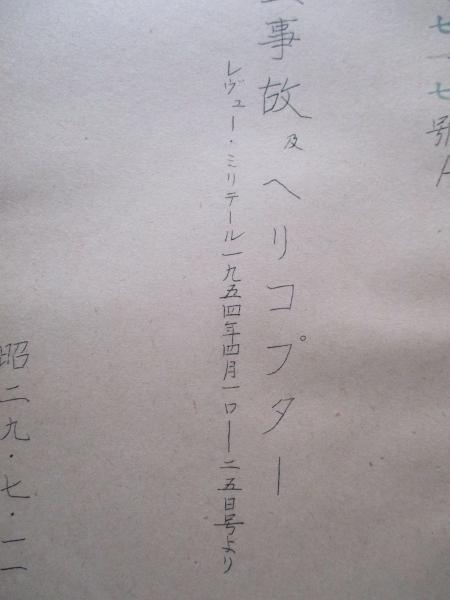 七一七號
事故及ヘリコプター
レヴュー・ミリテール一九五四年四月一〇ー二五日号より
昭二九・七・二